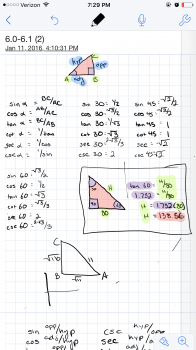 Verizon 7:29 PM
6.0-6.1 (2)
Jan 11, 2016, 4:10:31 PM
hyp opp
A adj B
sin α = BC/AC sin 30 = 1/2 sin 45 = √2/2
cos α = AB/AC cos 30 = √3/2 cos 45 = √2/2
tan α = BC/AB tan 30 = √3/3 tan 45 = 1
cot α = 1/tan cot 30 = √3 cot 45 = 1
sec α = 1/cos sec 30 = 2√3/3 sec = √2
csc α = 1/sin csc 30 = 2 csc 45 = √2
sin 60 = √3/2
cos 60 = 1/2
tan 60 = √3
cot 60 = √3/3
sec 60 = 2
csc 60 = 2√3/3
H
80
tan 60 = H/80
1.732 = H/80
H = 1.732 (80)
H = 138.56
C
√110 11
B A
√11
sin opp/hyp csc hyp/opp
cos adj/hyp sec hyp/a